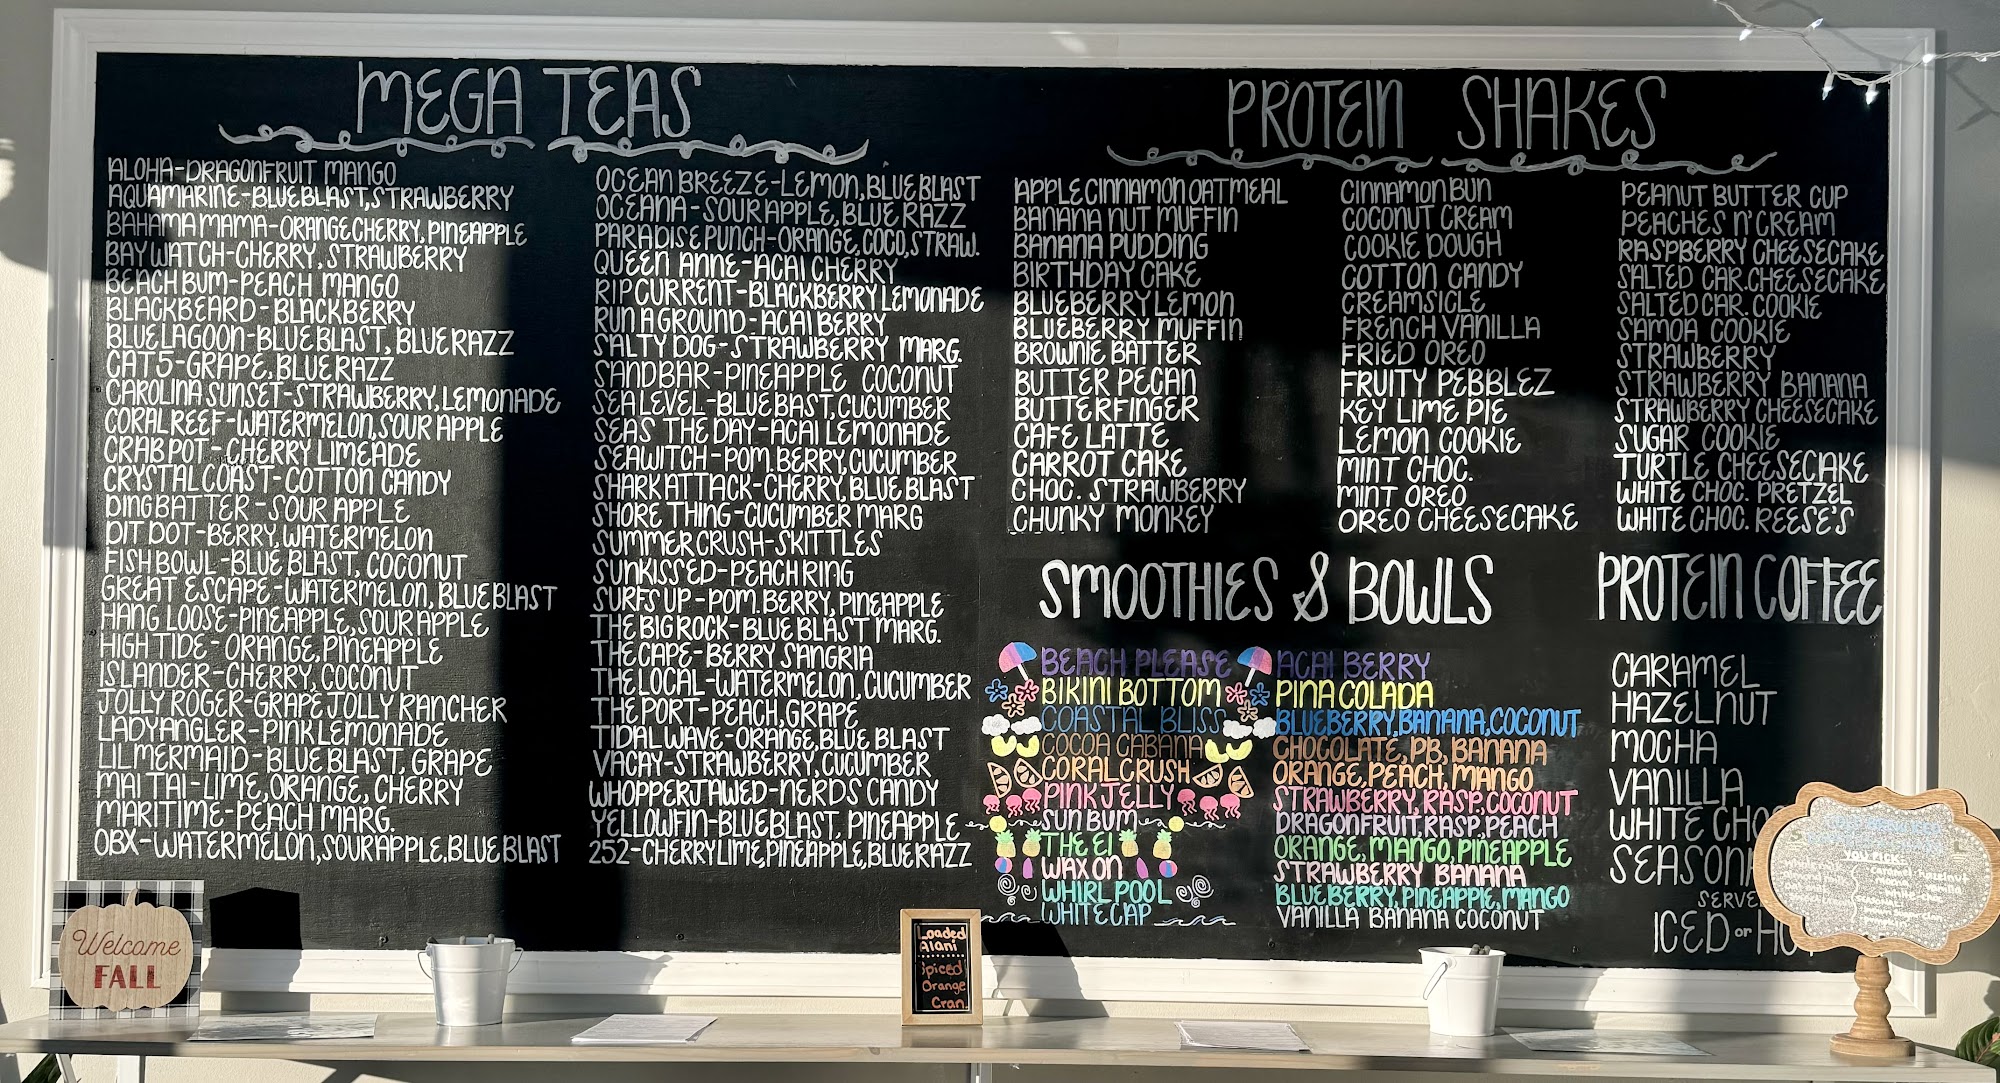 MEGA TEAS
ALOHA-DRAGONFRUIT MANGO
AQUAMARINE-BLUEBLAST, STRAWBERRY
BAHAMA MAMA-ORANGE CHERRY, PINEAPPLE
BAY WATCH-CHERRY, STRAWBERRY
BEACH BUM-PEACH MANGO
BLACKBEARD-BLACKBERRY
BLUE LAGOON-BLUE BLAST, BLUE RAZZ
CAT 5-GRAPE, BLUE RAZZ
CAROLINA SUNSET-STRAWBERRY, LEMONADE
CORAL REEF-WATERMELON, SOUR APPLE
CRAB POT-CHERRY LIMEADE
CRYSTAL COAST-COTTON CANDY
DINGBATTER-SOUR APPLE
DIT DOT-BERRY, WATERMELON
FISH BOWL-BLUE BLAST, COCONUT
GREAT ESCAPE-WATERMELON, BLUE BLAST
HANG LOOSE-PINEAPPLE, SOUR APPLE
HIGH TIDE-ORANGE, PINEAPPLE
ISLANDER-CHERRY, COCONUT
JOLLY ROGER-GRAPE JOLLY RANCHER
LADY ANGLER-PINK LEMONADE
LIL MERMAID-BLUE BLAST, GRAPE
MAI TAI-LIME, ORANGE, CHERRY
MARITIME-PEACH MARG.
OBX-WATERMELON, SOUR APPLE, BLUE BLAST
OCEAN BREEZE-LEMON, BLUE BLAST
OCEANA-SOUR APPLE, BLUE RAZZ
PARADISE PUNCH-ORANGE, COCO, STRAW.
QUEEN ANNE-ACAI CHERRY
RIP CURRENT-BLACKBERRY LEMONADE
RUN AGROUND-ACAI BERRY
SALTY DOG-STRAWBERRY MARG.
SANDBAR-PINEAPPLE COCONUT
SEA LEVEL-BLUE BAST, CUCUMBER
SEAS THE DAY-ACAI LEMONADE
SEAWITCH-POM. BERRY, CUCUMBER
SHARK ATTACK-CHERRY, BLUE BLAST
SHORE THING-CUCUMBER MARG
SUMMER CRUSH-SKITTLES
SUNKISSED-PEACH RING
SURFS UP-POM. BERRY, PINEAPPLE
THE BIG ROCK-BLUE BLAST MARG.
THE CAPE-BERRY SANGRIA
THE LOCAL-WATERMELON, CUCUMBER
THE PORT-PEACH, GRAPE
TIDAL WAVE-ORANGE, BLUE BLAST
VACAY-STRAWBERRY, CUCUMBER
WHOPPERJAWED-NERDS CANDY
YELLOWFIN-BLUEBLAST, PINEAPPLE
252-CHERRY LIME, PINEAPPLE, BLUE RAZZ
PROTEIN SHAKES
APPLE CINNAMON OATMEAL
BANANA NUT MUFFIN
BANANA PUDDING
BIRTHDAY CAKE
BLUEBERRY LEMON
BLUEBERRY MUFFIN
BROWNIE BATTER
BUTTER PECAN
BUTTERFINGER
CAFE LATTE
CARROT CAKE
CHOC. STRAWBERRY
CHUNKY MONKEY
CINNAMON BUN
COCONUT CREAM
COOKIE DOUGH
COTTON CANDY
CREAMSICLE
FRENCH VANILLA
FRIED OREO
FRUITY PEBBLEZ
KEY LIME PIE
LEMON COOKIE
MINT CHOC.
MINT OREO
OREO CHEESECAKE
PEANUT BUTTER CUP
PEACHES N' CREAM
RASPBERRY CHEESECAKE
SALTED CAR. CHEESECAKE
SALTED CAR. COOKIE
SAMOA COOKIE
STRAWBERRY
STRAWBERRY BANANA
STRAWBERRY CHEESECAKE
SUGAR COOKIE
TURTLE CHEESECAKE
WHITE CHOC. PRETZEL
WHITE CHOC. REESE'S
SMOOTHIES & BOWLS
BEACH PLEASE ACAI BERRY
BIKINI BOTTOM PINA COLADA
COASTAL BLISS BLUEBERRY, BANANA, COCONUT
COCOA CABANA CHOCOLATE, PB, BANANA
CORAL CRUSH ORANGE, PEACH, MANGO
PINK JELLY STRAWBERRY, RASP, COCONUT
SUN BUM DRAGONFRUIT, RASP, PEACH
THE EI ORANGE, MANGO, PINEAPPLE
WAX ON STRAWBERRY BANANA
WHIRLPOOL BLUEBERRY, PINEAPPLE, MANGO
WHITECAP VANILLA BANANA COCONUT
PROTEIN COFFEE
CARAMEL
HAZELNUT
MOCHA
VANILLA
WHITE CHO
SEASON
SERVE
ICED or HO
Welcome
FALL
Loaded
Alani
Spiced
Orange
Cran
YOU PICK:
caramel-hazelnut